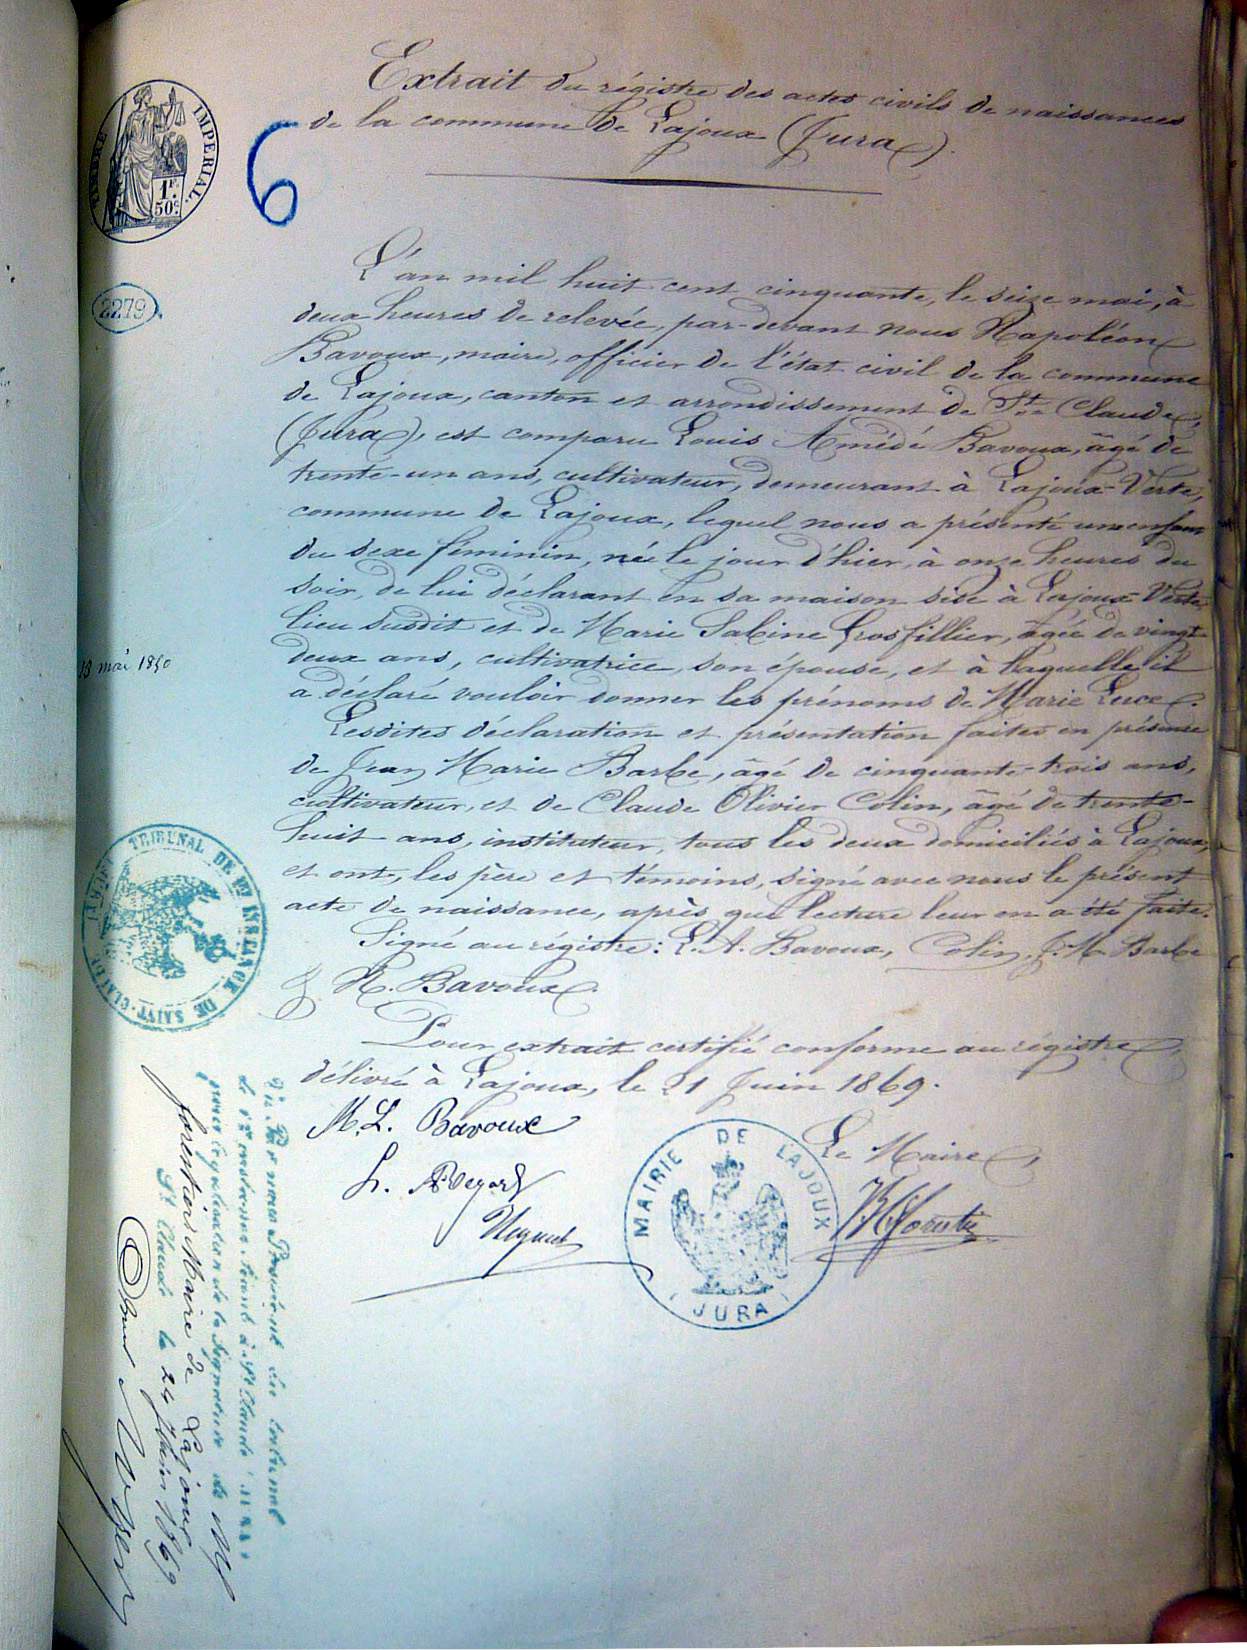 Extrait du régistre des actes civils de naissances
de la commune de Lajoux (Jura).
TIMBRE IMPERIAL.
1F.
50c.
6
2279
L'an mil huit cent cinquante, le seize mai, à
deux heures de relevée, par-devant nous Napoléon
Bavoux, maire, officier de l'état civil de la commune
de Lajoux, canton et arrondissement de St. Claude,
(Jura), est comparu Louis Amédé Bavoux, âgé de
trente-un ans, cultivateur, demeurant à Lajoux-Verte,
commune de Lajoux, lequel nous a présenté un enfant
du sexe féminin, née le jour d'hier, à onze heures du
soir, de lui déclarant en sa maison sise à Lajoux-Verte
lieu susdit et de Marie Sabine Grosfillier, âgée de vingt
deux ans, cultivatrice, son épouse, et à laquelle il
a déclaré vouloir donner les prénoms de Marie Luce.
mai 1850
Lesdites déclaration et présentation faites en présence
de Jean Marie Barbe, âgé de cinquante-trois ans,
cultivateur, et de Claude Olivier Colin, âgé de trente-
huit ans, instituteur, tous les deux domiciliés à Lajoux,
et ont, les père et témoins, signé avec nous le présent
acte de naissance, après que lecture leur en a été faite.
Signé au régistre: L. A. Bavoux, Colin, J. M. Barbe
& N. Bavoux.
TRIBUNAL DE 1re INSTANCE DE SAINT-CLAUDE
Pour extrait certifié conforme au régistre,
délivré à Lajoux, le 21 Juin 1869.
M. L. Bavoux
Le Maire,
MAIRIE DE LAJOUX
(JURA)
Vu Par nous Président du tribunal
de 1re instance séant à St Claude Jura
pour légalisation de la signature de M
forestier Maire de Lajoux
St Claude le 24 Juin 1869